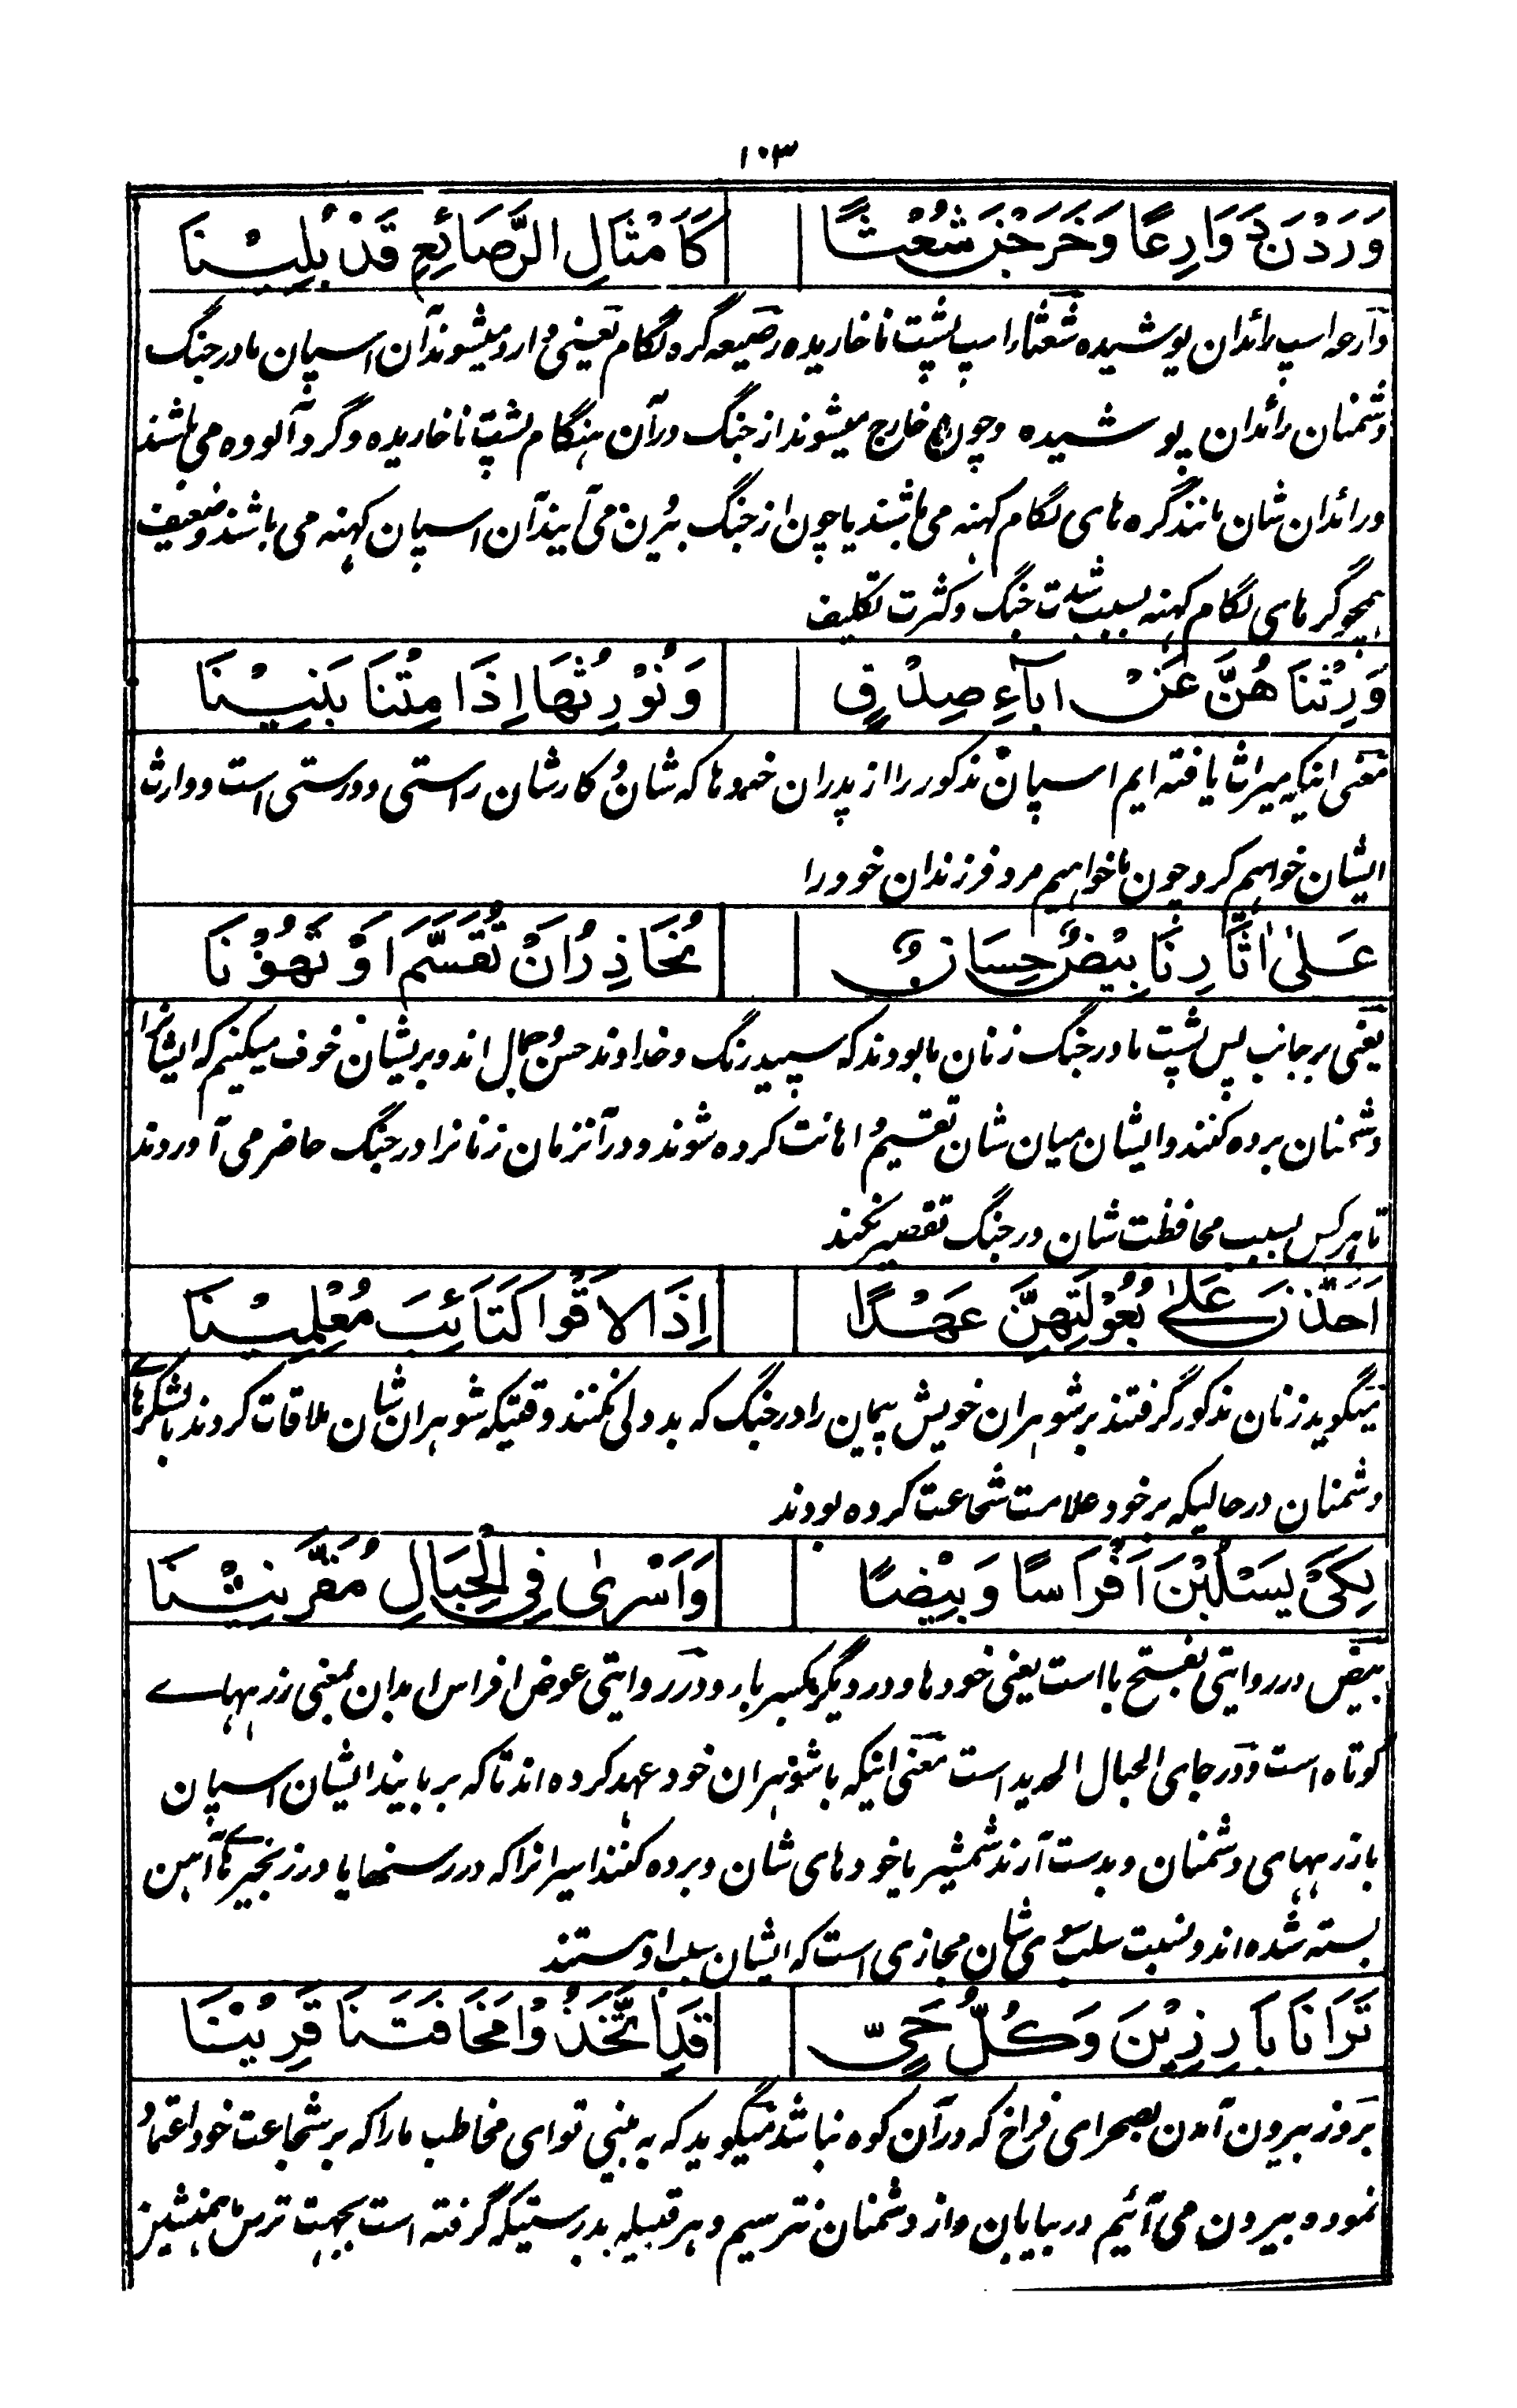 ۱۰۳
وَرَدْنَ دَوَارِعًا وَخَرَجْنَ شُعْثًا كَاَمْثَالِ الرَّصَائِعِ قَدْ بُلِيْنَا
دارعه اسپ رائدان پوشیده شعثا اسپ پشت ناخاریده رصیعه گره لگام یعنی وارد میشوند آن اسپان ما در جنگ
دشمنان رائدان پوشیده و چون خارج میشوند از جنگ در آن هنگام پشت ناخاریده و گرد آلوده می باشند
و رائدان شان مانند گره های لگام کهنه می باشند یا چون از جنگ بیرون می آیند آن اسپان کهنه می باشند و ضعیف
همچو گرهای لگام کهنه بسبب شدت جنگ و کثرت تکلیف
وَرِثْنَاهُنَّ عَنْ اٰبَآءِ صِدْقٍ وَنُوْرِثُهَا اِذَا مِتْنَا بَنِيْنَا
معنی اینکه میراث یافته ایم اسپان مذکور را از پدران خودها که شان و کار شان راستی و درستی است و وارث
ایشان خواهیم کرد چون ما خواهیم مرد فرزندان خود را
عَلٰى اٰثَارِنَا بِيْضٌ حِسَانٌ نُحَاذِرُ اَنْ تُقَسَّمَ اَوْ تَهُوْنَا
یعنی بر جانب پس پشت ما در جنگ زنان ما بودند که سپید رنگ و خداوند حسن و جمال اند و بریشان خوف میکنیم که ایشانرا
دشمنان برده کنند و ایشان میان شان تقسیم و اهانت کرده شوند و در آنزمان زنانرا در جنگ حاضر می آوردند
تا هر کس بسبب محافظت شان در جنگ تقصیر نکند
اَخَذْنَ عَلٰى بُعُوْلَتِهِنَّ عَهْدًا اِذَا لَاقَوْا كَتَائِبَ مُعْلِمِيْنَا
میگوید زنان مذکور گرفتند بر شوهران خویش پیمان را در جنگ که بددلی نکنند وقتیکه شوهران شان ملاقات کردند با لشکرهای
دشمنان در حالیکه بر خود علامت شجاعت کرده بودند
لِكَيْ يَسْلُبْنَ اَفْرَاسًا وَبِيْضًا وَاَسْرٰى فِي الْحِبَالِ مُقَرَّنِيْنَا
بیض در روایتی بفتح با است یعنی خودها و در دیگر بکسر بار و در روایتی عوض افراس ابدان بمعنی زرههای
کوتاه است و در جای الحبال الحدید است معنی اینکه با شوهران خود عهد کرده اند تا که بربایند ایشان اسپان
با زرههای دشمنان و بدست آرند شمشیر یا خودهای شان و برده کنند اسیرانرا که در رسنها یا در زنجیرهای آهن
بسته شده اند و نسبت سلب سوی شان مجازی است که ایشان سبب او هستند
تَرَانَا بَارِزِيْنَ وَكُلُّ حَيٍّ قَدِ اتَّخَذُوْا مَخَافَتَنَا قَرِيْنَا
بروز بیرون آمدن بصحرای فراخ که در آن کوه نباشد میگوید که به بینی تو ای مخاطب ما را که بر شجاعت خود اعتماد
نموده بیرون می آئیم در بیابان و از دشمنان نترسیم و هر قبیله بدرستیکه گرفته است بجهت ترس ما همنشین